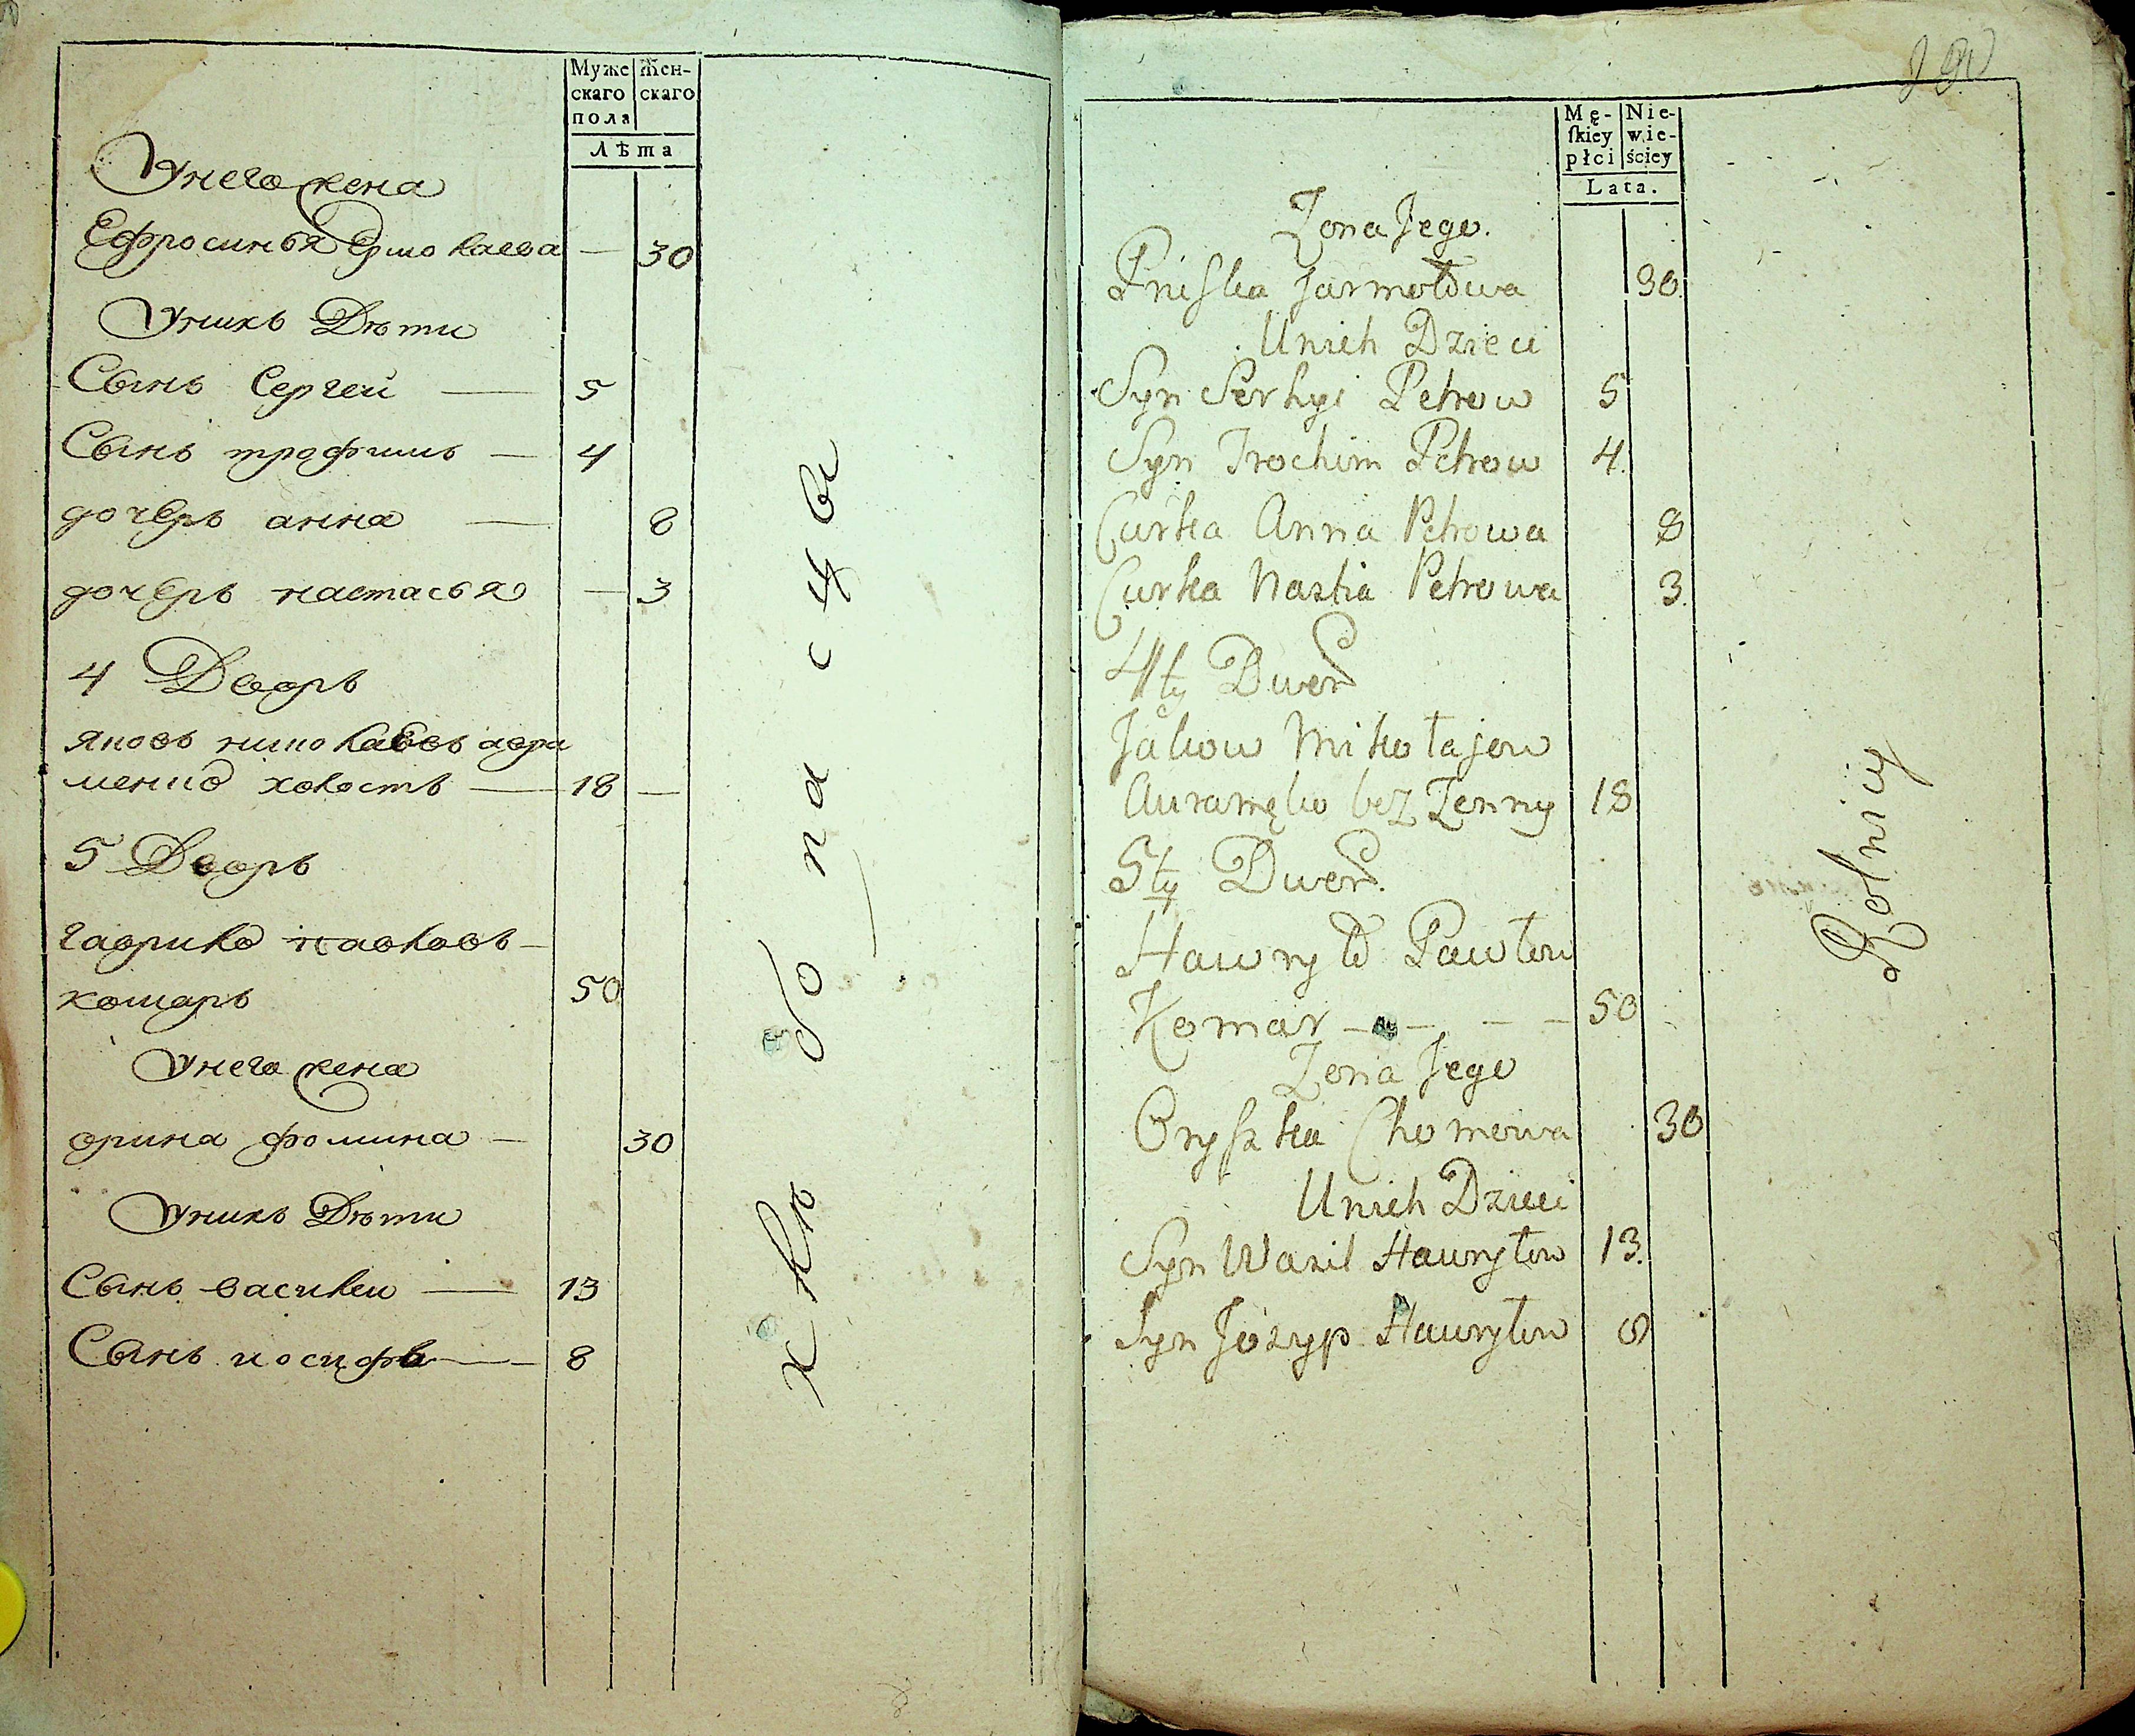 Муже
скаго
пола
Жен-
скаго
Лѣта
Унего жена
Ефросинья Ермолаева — 30
Унихъ Дѣти
Сынъ Сергей — 5
Сынъ трофимъ — 4
дочерь анна — 8
дочерь настасья — 3
4 Дворъ
яковъ николаевъ авра
менко холостъ — 18 —
5 Дворъ
гаврило павловъ —
комаръ 50
Унего жена
орина фомина — 30
Унихъ Дѣти
Сынъ василеи — 13
Сынъ иосифъ — 8
хлѣбопасцы
Mę-
skiey
płci
Nie-
wie-
ściey
Lata.
Zona Jego.
Pruska Jarmołowa 30
Unich Dzieci
Syn Serhyi Petrow 5
Syn Trochim Petrow 4
Curka Anna Petrowa 8
Curka Nastia Petrowa 3
4ty Dwor
Jakow Mikołajow
Auramęko bez Zenny 18
5ty Dwor.
Hawryło Pawłow
Komar — — — — 50
Zona Jego
Oryszka Chomowa 30
Unich Dzieci
Syn Wasil Hawryłow 13.
Syn Jozyp Hawryłow 8
Rolnicy